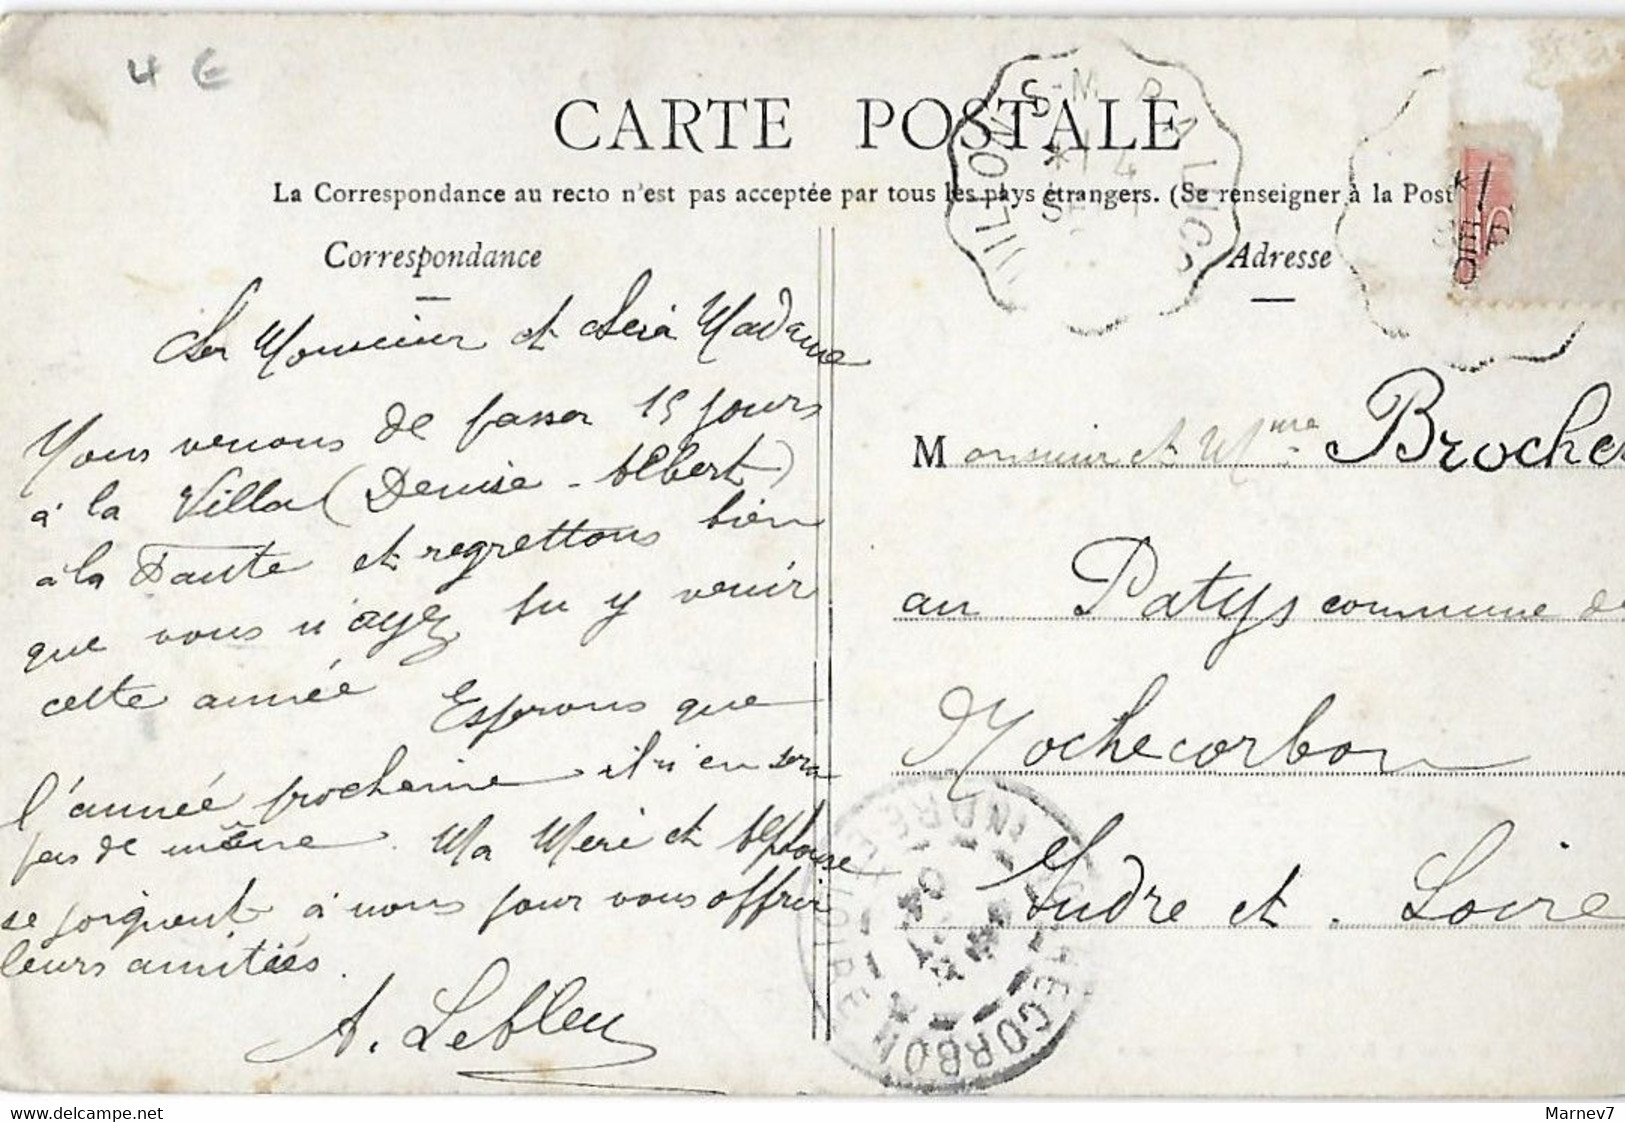 4 €
CARTE POSTALE
La Correspondance au recto n'est pas acceptée par tous les pays étrangers. (Se renseigner à la Post
Correspondance
Cher Monsieur et chère Madame
Nous venons de passer 15 jours
à la Villa (Denise - Albert)
à la Faute et regrettons bien
que vous n'ayez pu y venir
cette année Esperons que
l'année prochaine il n'en sera
pas de même. Ma Mère et Alphonse
se joignent à nous pour vous offrir
leurs amitiés.
A. Lebleu
Adresse
Monsieur et Mme Broche
au Patys commune de
Rochecorbon
Indre et Loire
INDRE ET LOIRE
ROCHECORBON
Marnev7
delcampe.net